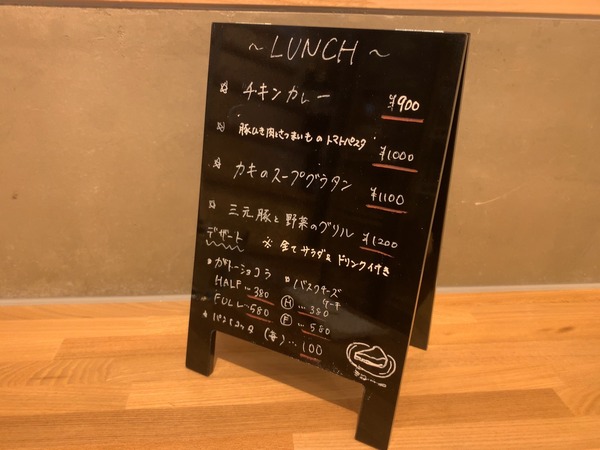 ～ LUNCH ～
☆ チキンカレー ¥900
☆ 豚ひき肉とさつまいものトマトパスタ ¥1000
☆ カキのスープグラタン ¥1100
☆ 三元豚と野菜のグリル ¥1200
デザート ※全てサラダ& ドリンク付き
• ガトーショコラ • バスクチーズケーキ
HALF … 380 Ⓗ … 380
FULL … 580 Ⓕ … 580
• パンナコッタ (苺) … 100